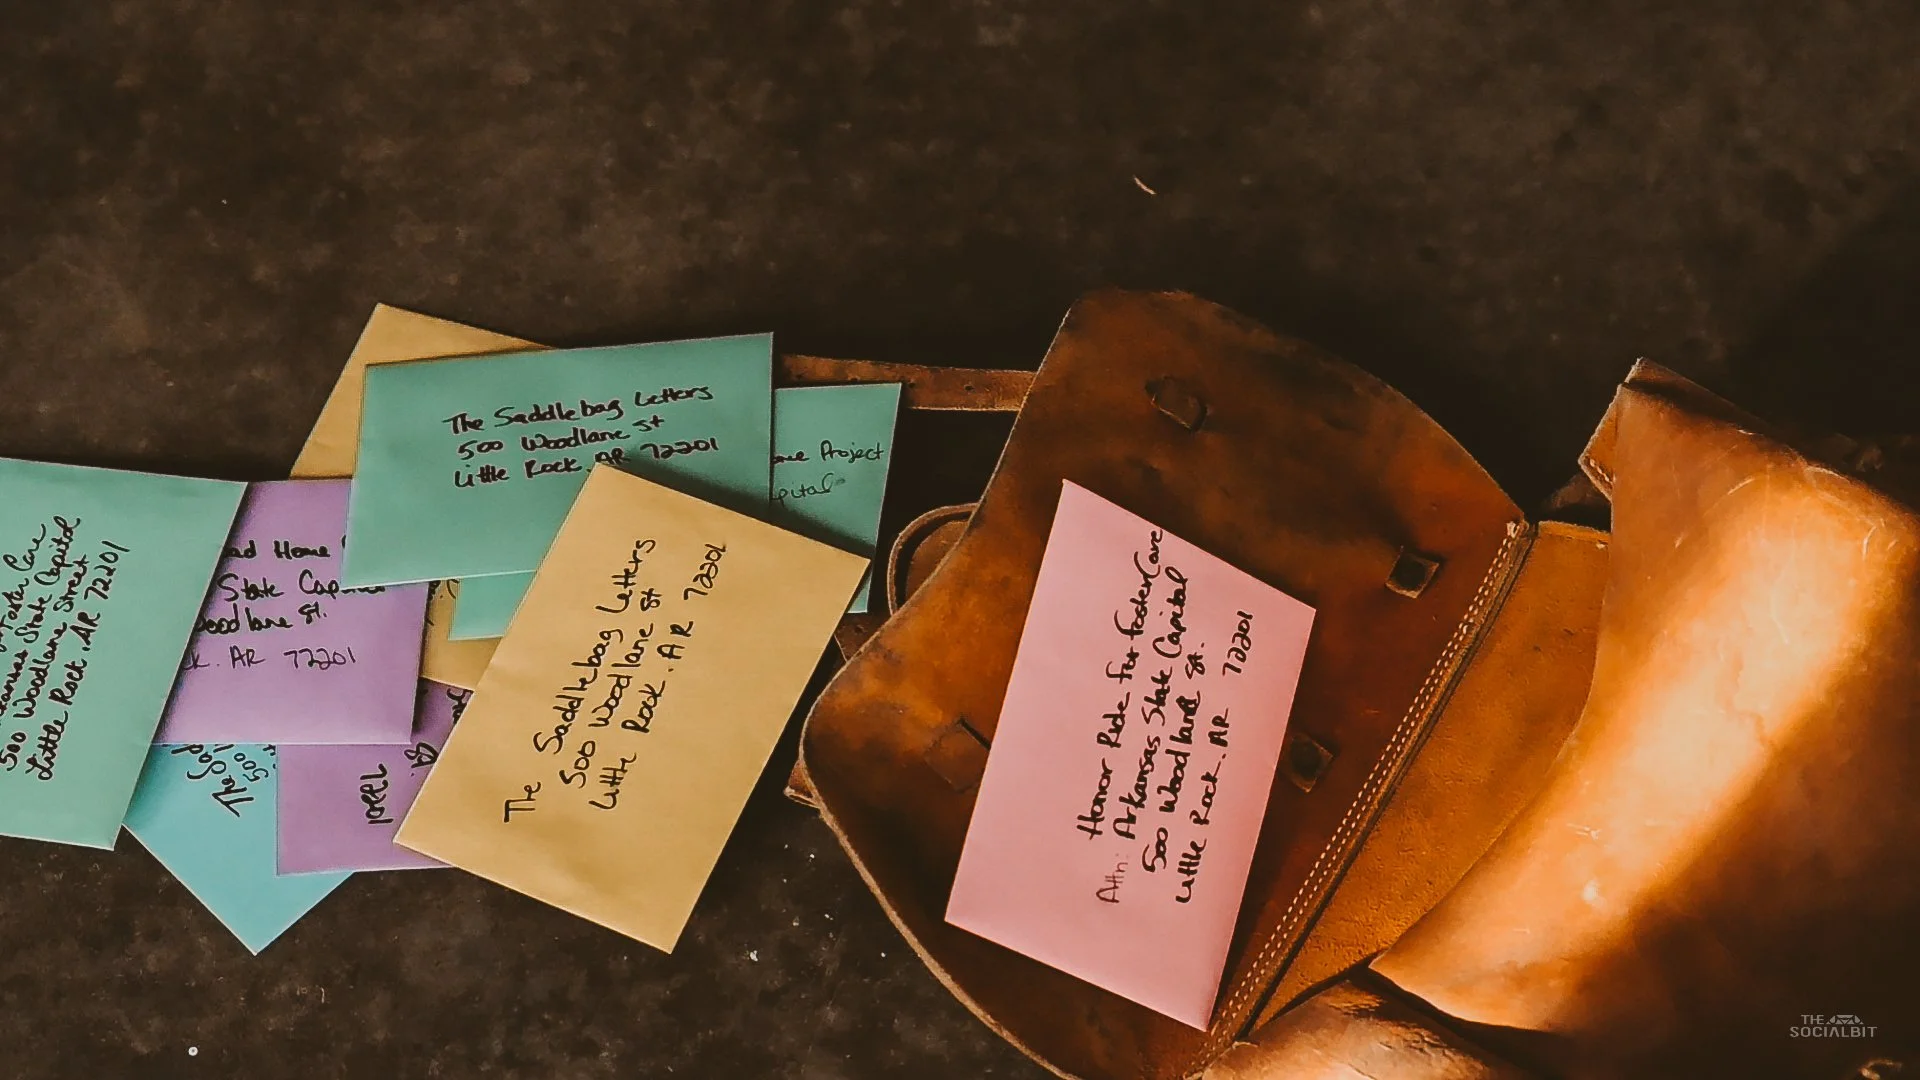 The Saddlebag Letters
500 Woodlane St
Little Rock, AR 72201
Project
Foster Care
Arkansas State Capitol
500 Woodlane Street
Little Rock, AR 72201
Home
State
Woodlane St.
AR 72201
The
500
72201
The Saddlebag Letters
500 Woodlane St
Little Rock. AR 72201
Honor Ride for Foster Care
Attn: Arkansas State Capital
500 Woodlane St.
Little Rock. AR 72201
THE
SOCIALBIT